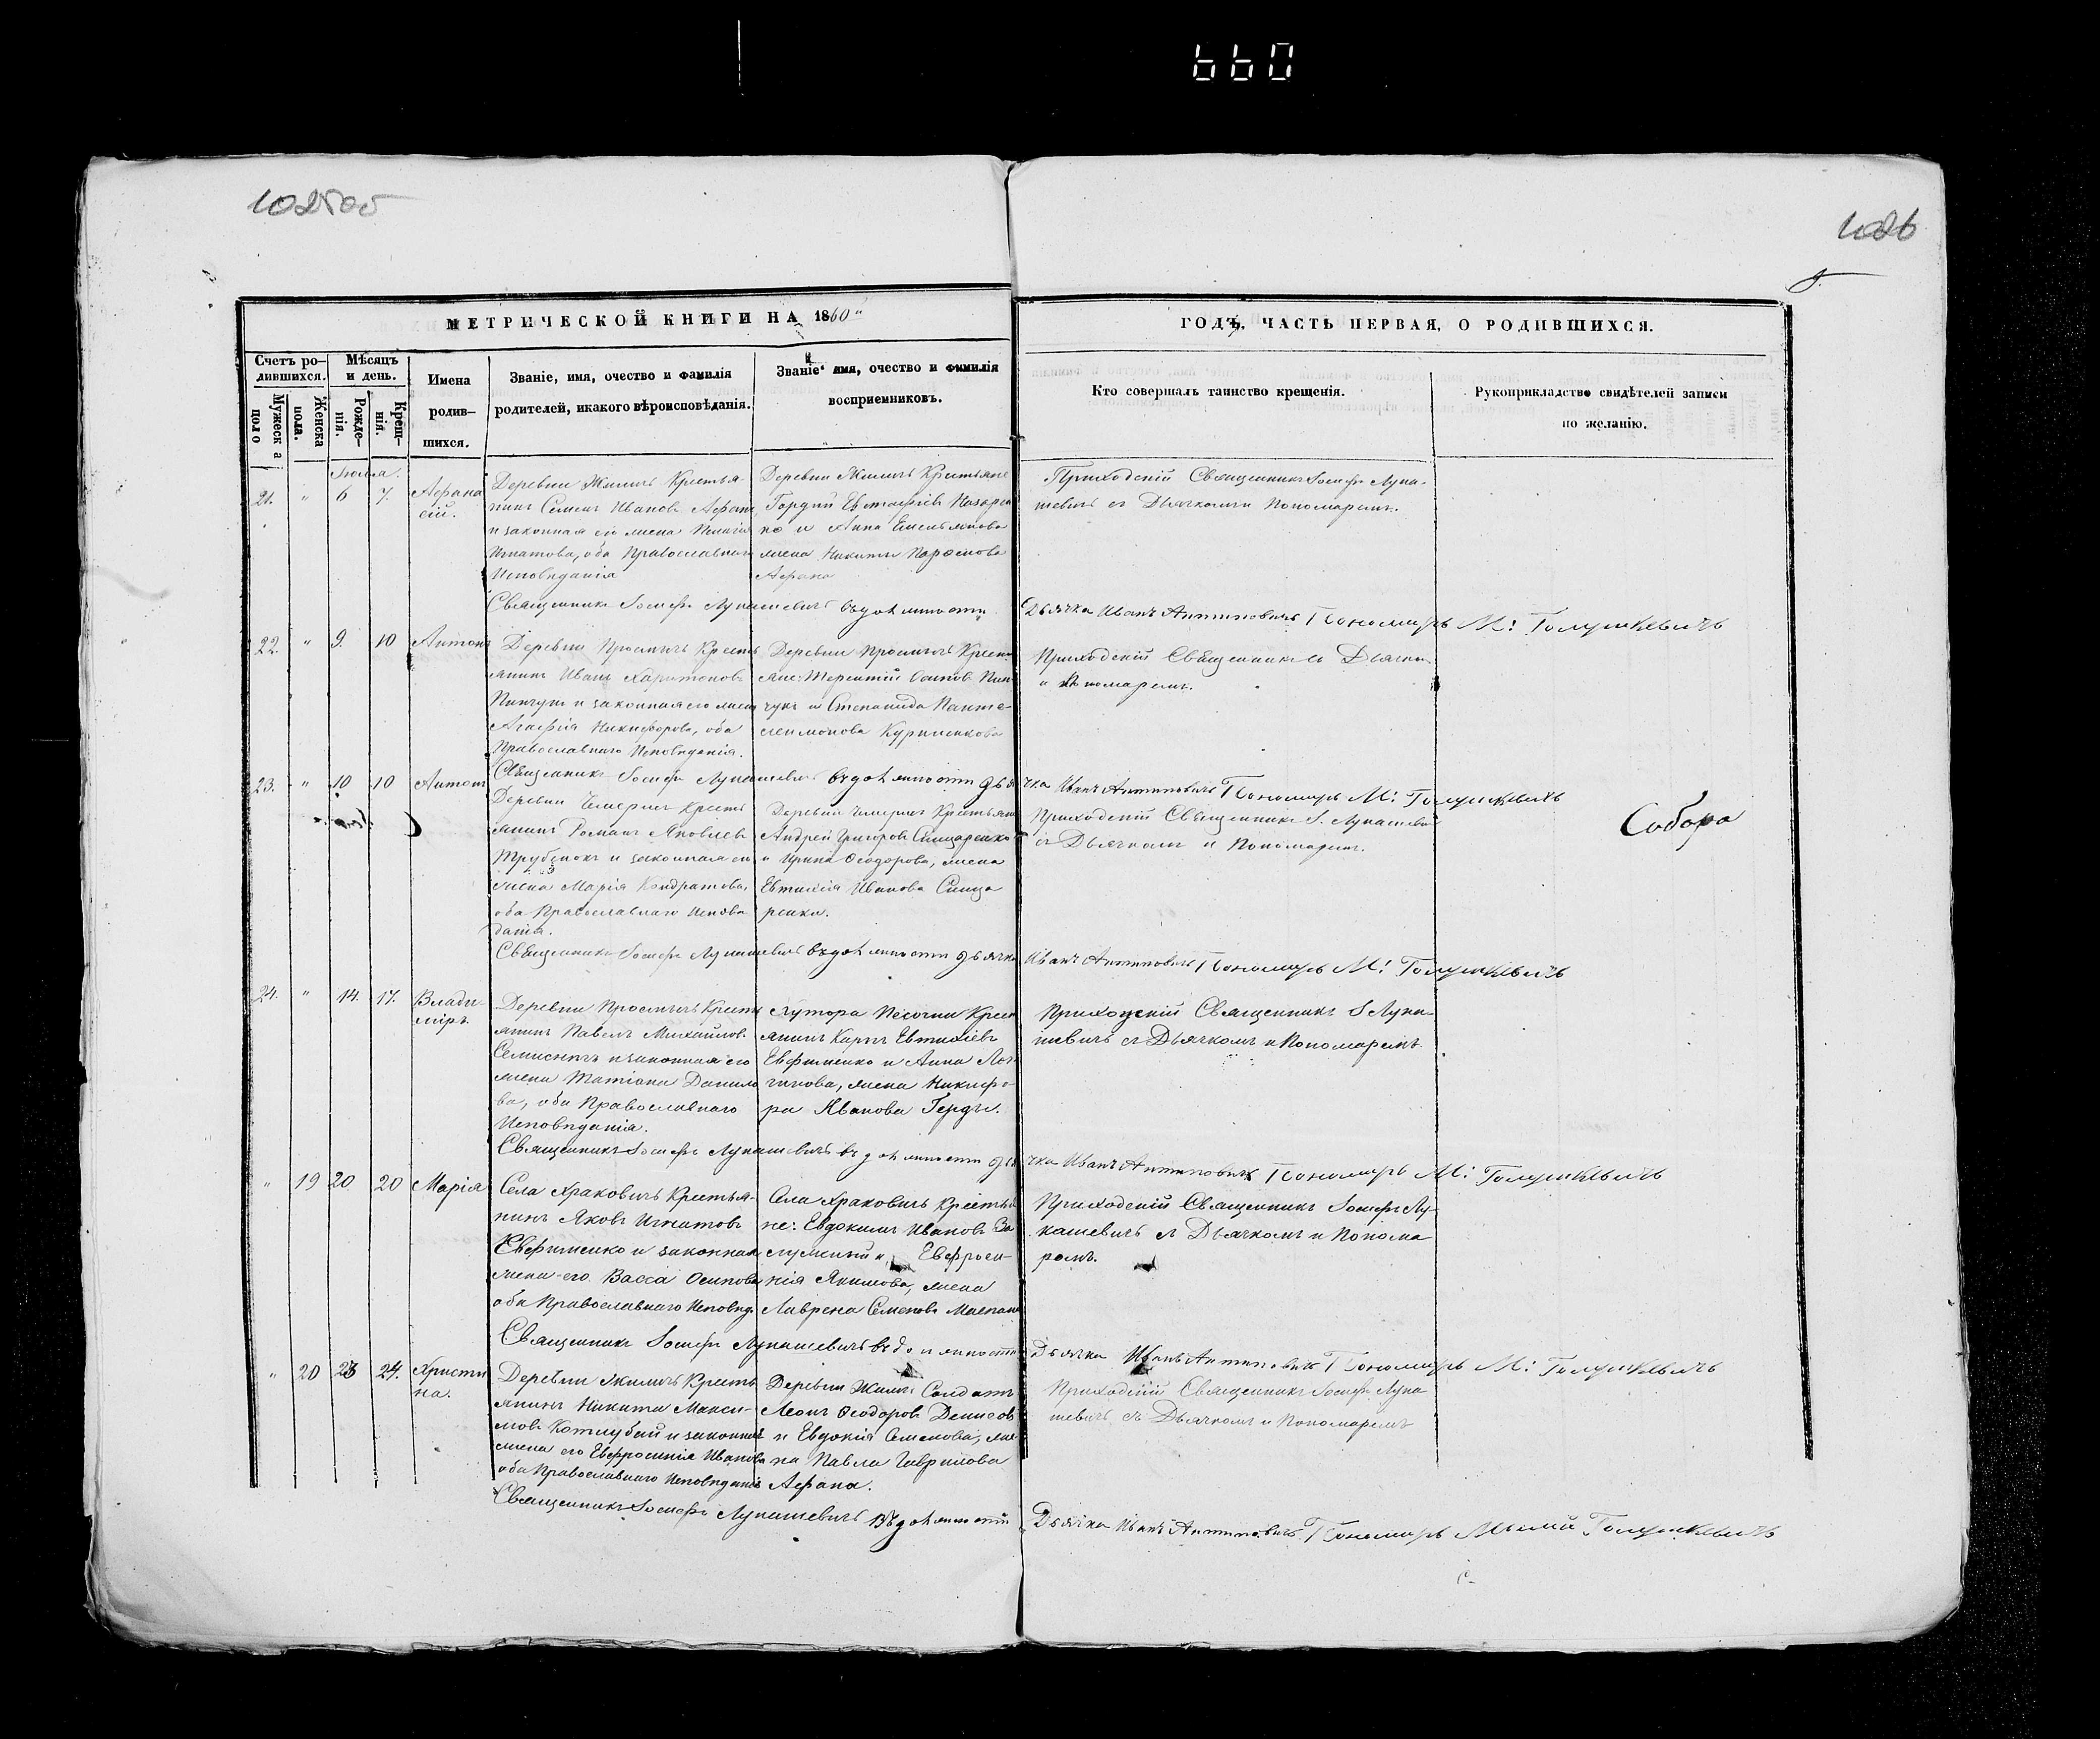 660
1026
МЕТРИЧЕСКОЙ КНИГИ НА 1860
ГОДЪ, ЧАСТЬ ПЕРВАЯ, О РОДИВШИХСЯ.
Счетъ ро-
дившихся.
Мужеска
поло
Женска
пола.
Мѣсяцъ
и день.
Рожде-
нія.
Крещ-
нія.
Имена
родив-
шихся.
Званіе, имя, очество и фамилія
родителей, икакого вѣроисповѣданія.
Званіе имя, очество и фамилія
восприемниковъ.
Кто совершалъ таинство крещенія.
Рукоприкладство свидѣтелей записи
по желанію.
21. " 6 7.
Афана
сій.
Деревни Жиличъ Крестья-
нинъ Семенъ Ивановъ
и законная его жена
Игнатова, оба Православнаго
Исповѣданія
Деревни Жиличъ Крестьяне
Гордій Евстафіевъ
но и Анна Емельянова
жена Никиты
Приходскій Священникъ Іосифъ Лука-
шевичъ съ Дьячкомъ и Пономаремъ.
Священникъ Іосифъ Лукашевичъ въ должности Дьячка Иванъ Антиповичъ Пономарь М: Голушкевичъ
22. " 9. 10
Антонъ
Деревни Кресть
янинъ Иванъ Харитоновъ
Пинчукъ и законная его жена
Агафія Никифорова, оба
Православнаго Исповѣданія.
Деревни Кресть
яне: Терентій Осиповъ Пин
чукъ и Степанида Панте
леимонова
Приходскій Священникъ съ Дьячко
и Пономаремъ.
Священникъ Іосифъ Лукашевичъ въ должности Дьячка Иванъ Антиповичъ Пономарь М: Голушкевичъ
23. " 10 10
Антонъ
Деревни Кресть
янинъ Романъ Яковлевъ
и законная его
жена Марія Кондратова,
оба Православнаго Исповѣ
данія.
Деревни Крестьяне
Андрей Григоровъ
и Ирина Ѳеодорова, жена
Иванова Слюса
ренка.
Приходскій Священникъ І. Лукашевичъ
съ Дьячкомъ и Пономаремъ.
Собора
Священникъ Іосифъ Лукашевичъ въ должности дьячка Иванъ Антиповичъ Пономарь М: Голушкевичъ
24. " 14. 17.
Влади-
міръ
Деревни Кресть
янинъ Павелъ Михайловъ
и законная его
жена Татіана Данило
ва, оба Православнаго
Исповѣданія.
Хутора Песочни Крест
янинъ Карпъ
Евфименко и Анна Лог
гинова, жена Никифо-
ра Иванова
Приходскій Священникъ І Лука-
шевичъ съ Дьячкомъ и Пономаремъ
Священникъ Іосифъ Лукашевичъ въ должности дьячка Иванъ Антиповичъ Пономарь М: Голушкевичъ
" 19 20 20
Марія
Села Храковичъ Крестья-
нинъ Яковъ Игнатовъ
Евфименко и законная
жена его Васса Осипова
оба Православнаго Исповѣд.
Села Храковичъ Крестья
не: Евдокимъ Ивановъ За
служный и Евфроси-
нія Якимова, жена
Лаврена Семенова
Приходскій Священникъ Іосифъ Лу-
кашевичъ съ Дьячкомъ и Понома
ремъ.
Священникъ Іосифъ Лукашевичъ въ должности Дьячка Иванъ Антиповичъ Пономарь М: Голушкевичъ
" 20 23 24.
Христи
на.
Деревни Жиличъ Кресть
янинъ Никита Макси-
мовъ Котлубай и законная
жена его Евфросинія Иванова
оба Православнаго Исповѣданія
Деревни Жиличъ Солдатъ
Леонъ Ѳеодоровъ Денисовъ
и Евдокія Семенова, же
на Павла Гаврилова
Приходскій Священникъ Іосифъ Лука
шевичъ съ Дьячкомъ и Пономаремъ
Священникъ Іосифъ Лукашевичъ въ должности Дьячка Иванъ Антиповичъ Пономарь Голушкевичъ